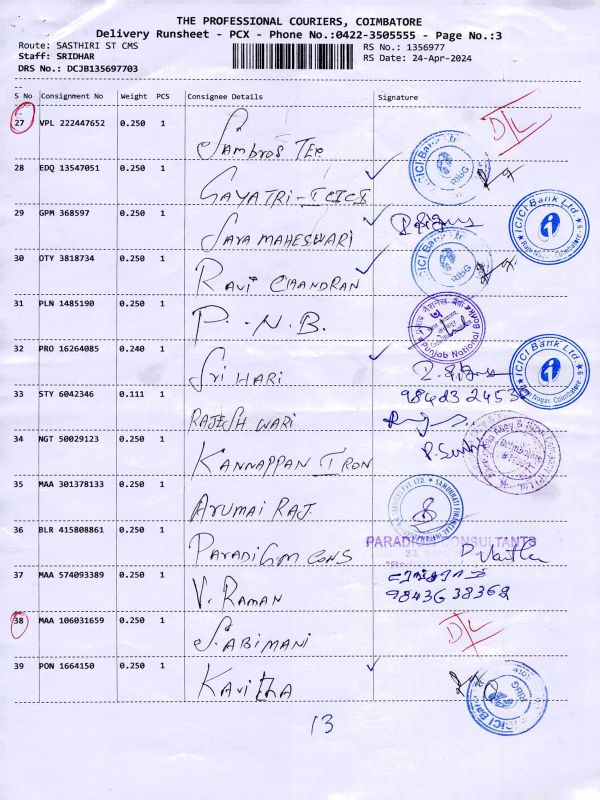 THE PROFESSIONAL COURIERS, COIMBATORE
Delivery Runsheet - PCX - Phone No.:0422-3505555 - Page No.:3
Route: SASTHIRI ST CMS
RS No.: 1356977
Staff: SRIDHAR
RS Date: 24-Apr-2024
DRS No.: DCJB135697703
S No Consignment No Weight PCS Consignee Details Signature
27 VPL 222447652 0.250 1 Sambros Tex D/L
28 EDQ 13547051 0.250 1 GAYATRI-ICICI ICICI Bank
29 GPM 368597 0.250 1 SAYAMAHESWARI ICICI Bank Ltd.
30 DTY 3818734 0.250 1 RAVI CHANDRAN ICICI Bank
31 PLN 1485190 0.250 1 P.N.B. Punjab National Bank
32 PRO 16264085 0.240 1 SRI HARI ICICI Bank Ltd.
33 STY 6042346 0.111 1 RAJESHWARI
34 NGT 50029123 0.250 1 KANNAPPAN IRON
35 MAA 301378133 0.250 1 ARUMAI RAJ.
36 BLR 415808861 0.250 1 PARADIGM CONS CONSULTANTS
37 MAA 574093389 0.250 1 V. RAMAN 9843638362
38 MAA 106031659 0.250 1 S. ABIMANI D/L
39 PON 1664150 0.250 1 KAVITHA ICICI Bank
13